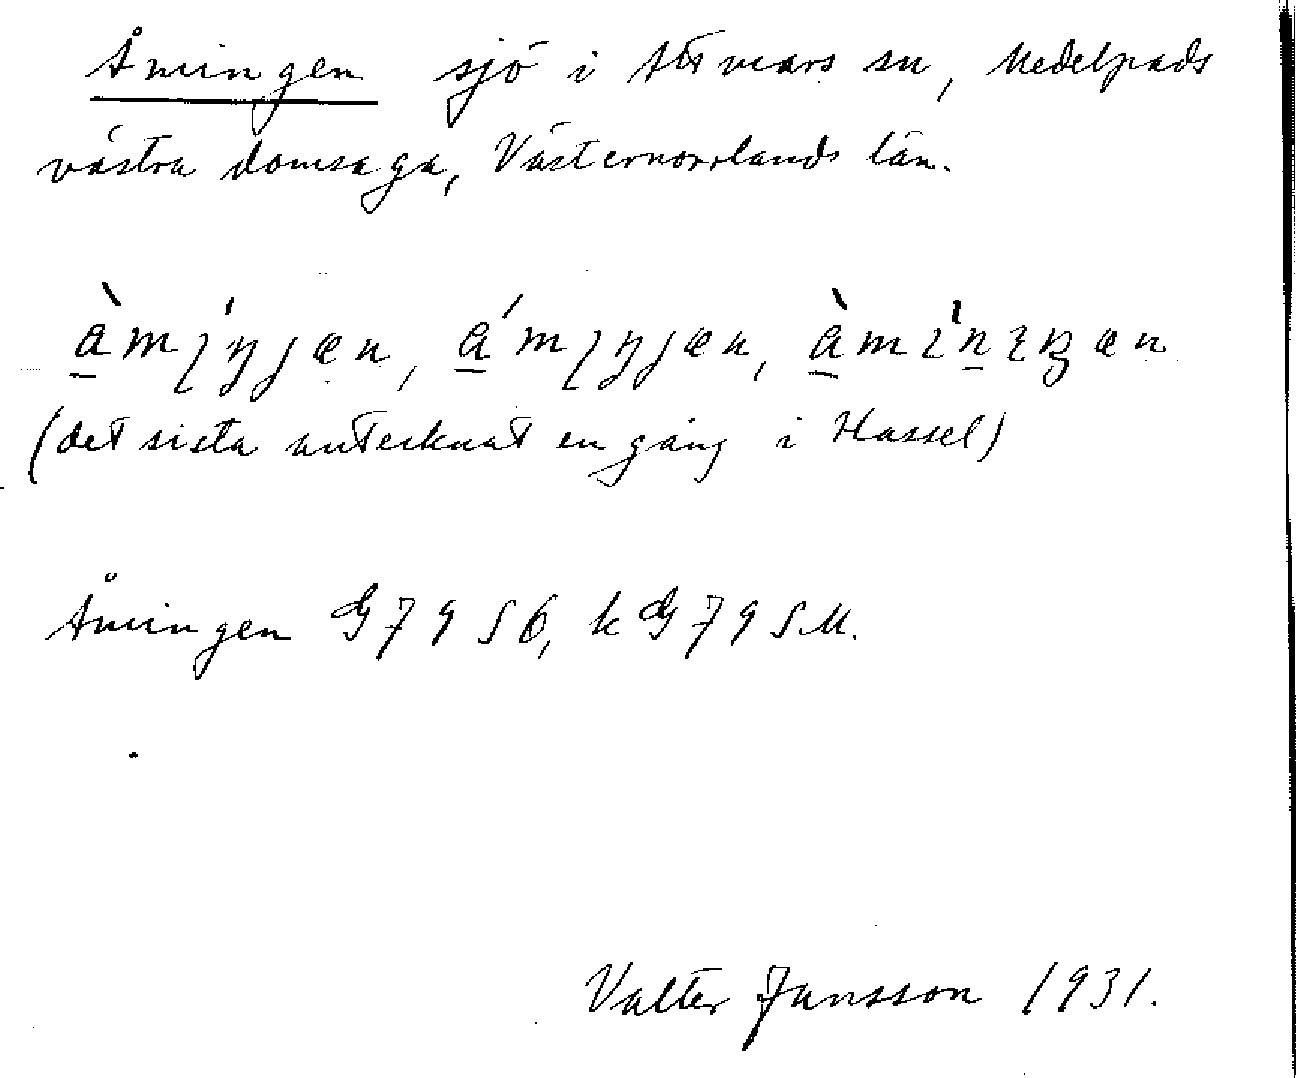 Åmingen sjö i Attmars sn, Medelpads
västra domsaga, Västernorrlands län.
(det sista antecknat en gång i Hassel)
Åmingen G 79 S Ö, k G 79 S M.
Valter Jansson 1931.